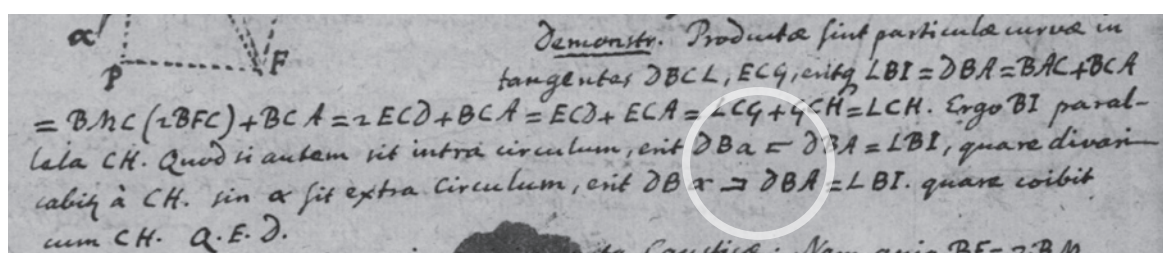 α
P F
Demonstr. Productæ sint particulæ curvæ in
tangentes DBCL, ECG, eritq LBI = DBA = BAC + BCA
= BMC (2BFC) + BCA = 2 ECD + BCA = ECD + ECA = LCG + GCH = LCH. Ergo BI paral-
lela CH. Quod si autem sit intra circulum, erit DBa ⊏ DBA = LBI, quare divari-
cabit à CH. sin α sit extra Circulum, erit DBα ⊐ DBA = LBI. quare coibit
cum CH. Q.E.D.
Causticæ: Nam quia BF = 2 BM